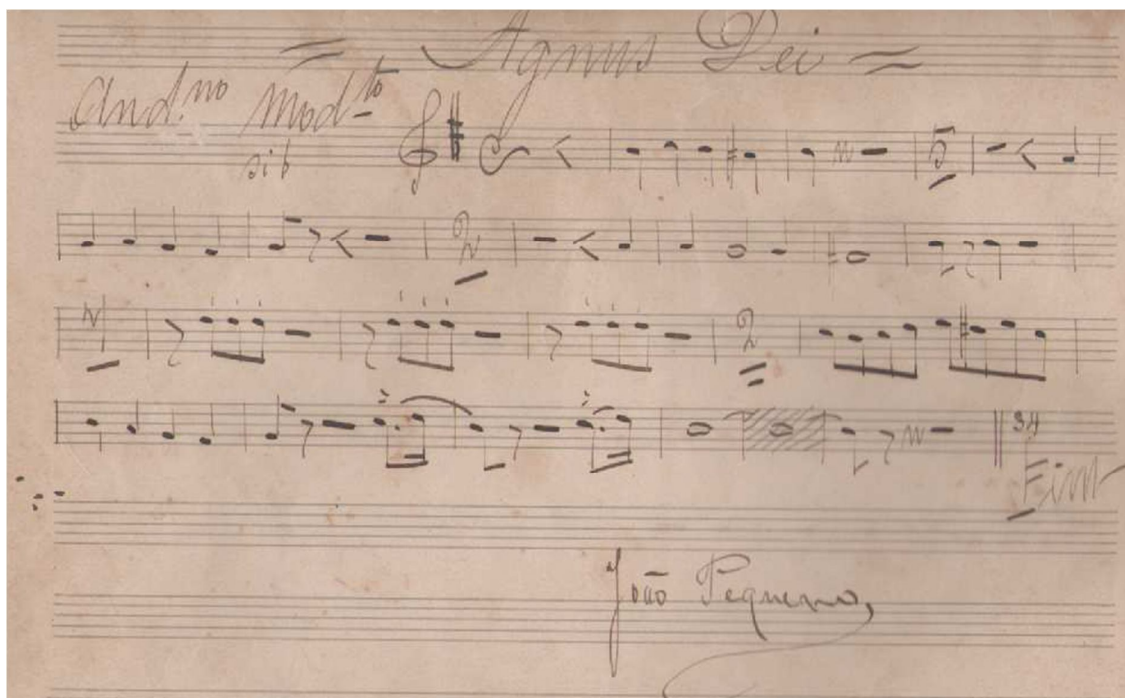 = Agnus Dei =
And.no Mod.to
sib
5
2
2
34
Fim
João Pequeno,